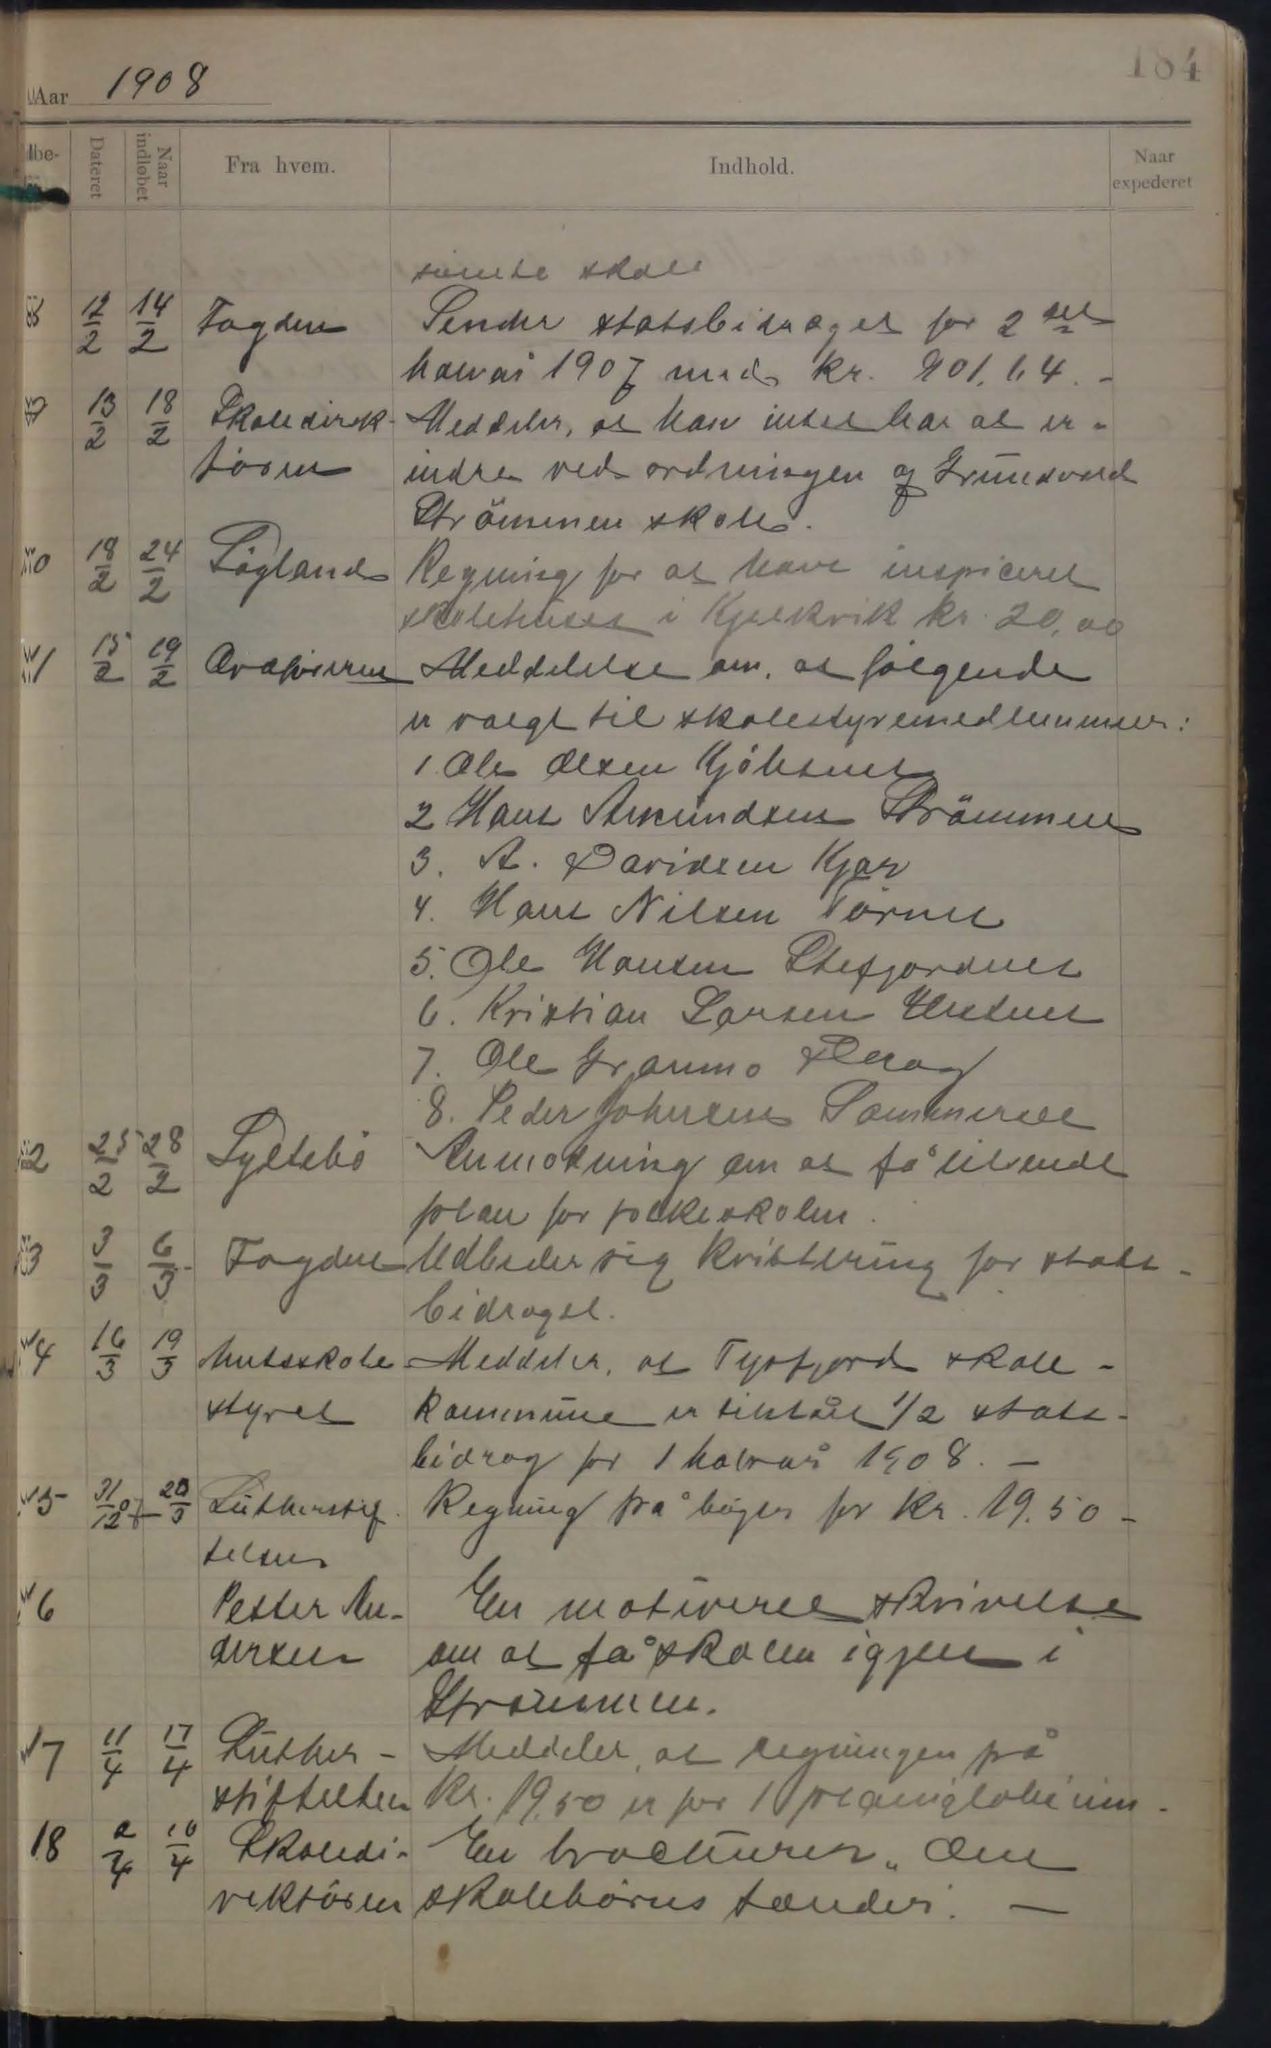 184
Aar 1908
Dateret
Naar indløbet
Fra hvem.
Indhold.
Naar expederet
skole
12/2 14/2 Fogden Sender statsbidraget for 2det
halvår 1907 med kr. 901,64.-
13/2 18/2 Skoledirek- Meddeler, at han intet har at er-
tøren indre ved ordningen af Grundvand
Strömmen skole.
0 18/2 24/2 Lögland Regning for at have inspiceret
skolehuset i Kjelkvik kr. 20,00
1 15/2 19/2 Ordføreren Meddelelse om, at følgende
er valgt til skolestyremedlemmer:
1. Ole Olsen Kjöbsnes
2 Hans Amundsen Strömmen
3. A. Davidsen Kjær
4. Hans Nilsen
5. Ole Hansen Stefjordnes
6. Kristian Larsen
7. Ole Granmo Drag
8. Peder Johnsen Sommerset
2 25/2 28/2 Anmodning om at få tilsendt
plan for folkeskolen.
3 3/3 6/3 Fogden Udbeder sig kvittering for stats-
bidraget.
4 16/3 19/3 Amtsskole- Meddeler, at Tysfjord skole-
styret kommune er tilstået 1/2 stats-
bidrag for 1 halvår 1908. —
5 31/12 07 20/3 Lutherstif- Regning på bøger for kr. 19.50 -
telsen
6 Petter An- En motiveret skrivelse
dersen om at få skolen igjen i
Strömmen.
17 11/4 17/4 Luther- Meddeler, at regningen på
stiftelsen Kr. 19,50 er for 1 planiglobium.
18 2/4 10/4 Skoledi- En brochurer „Om
rektøren skolebørns tænder. —